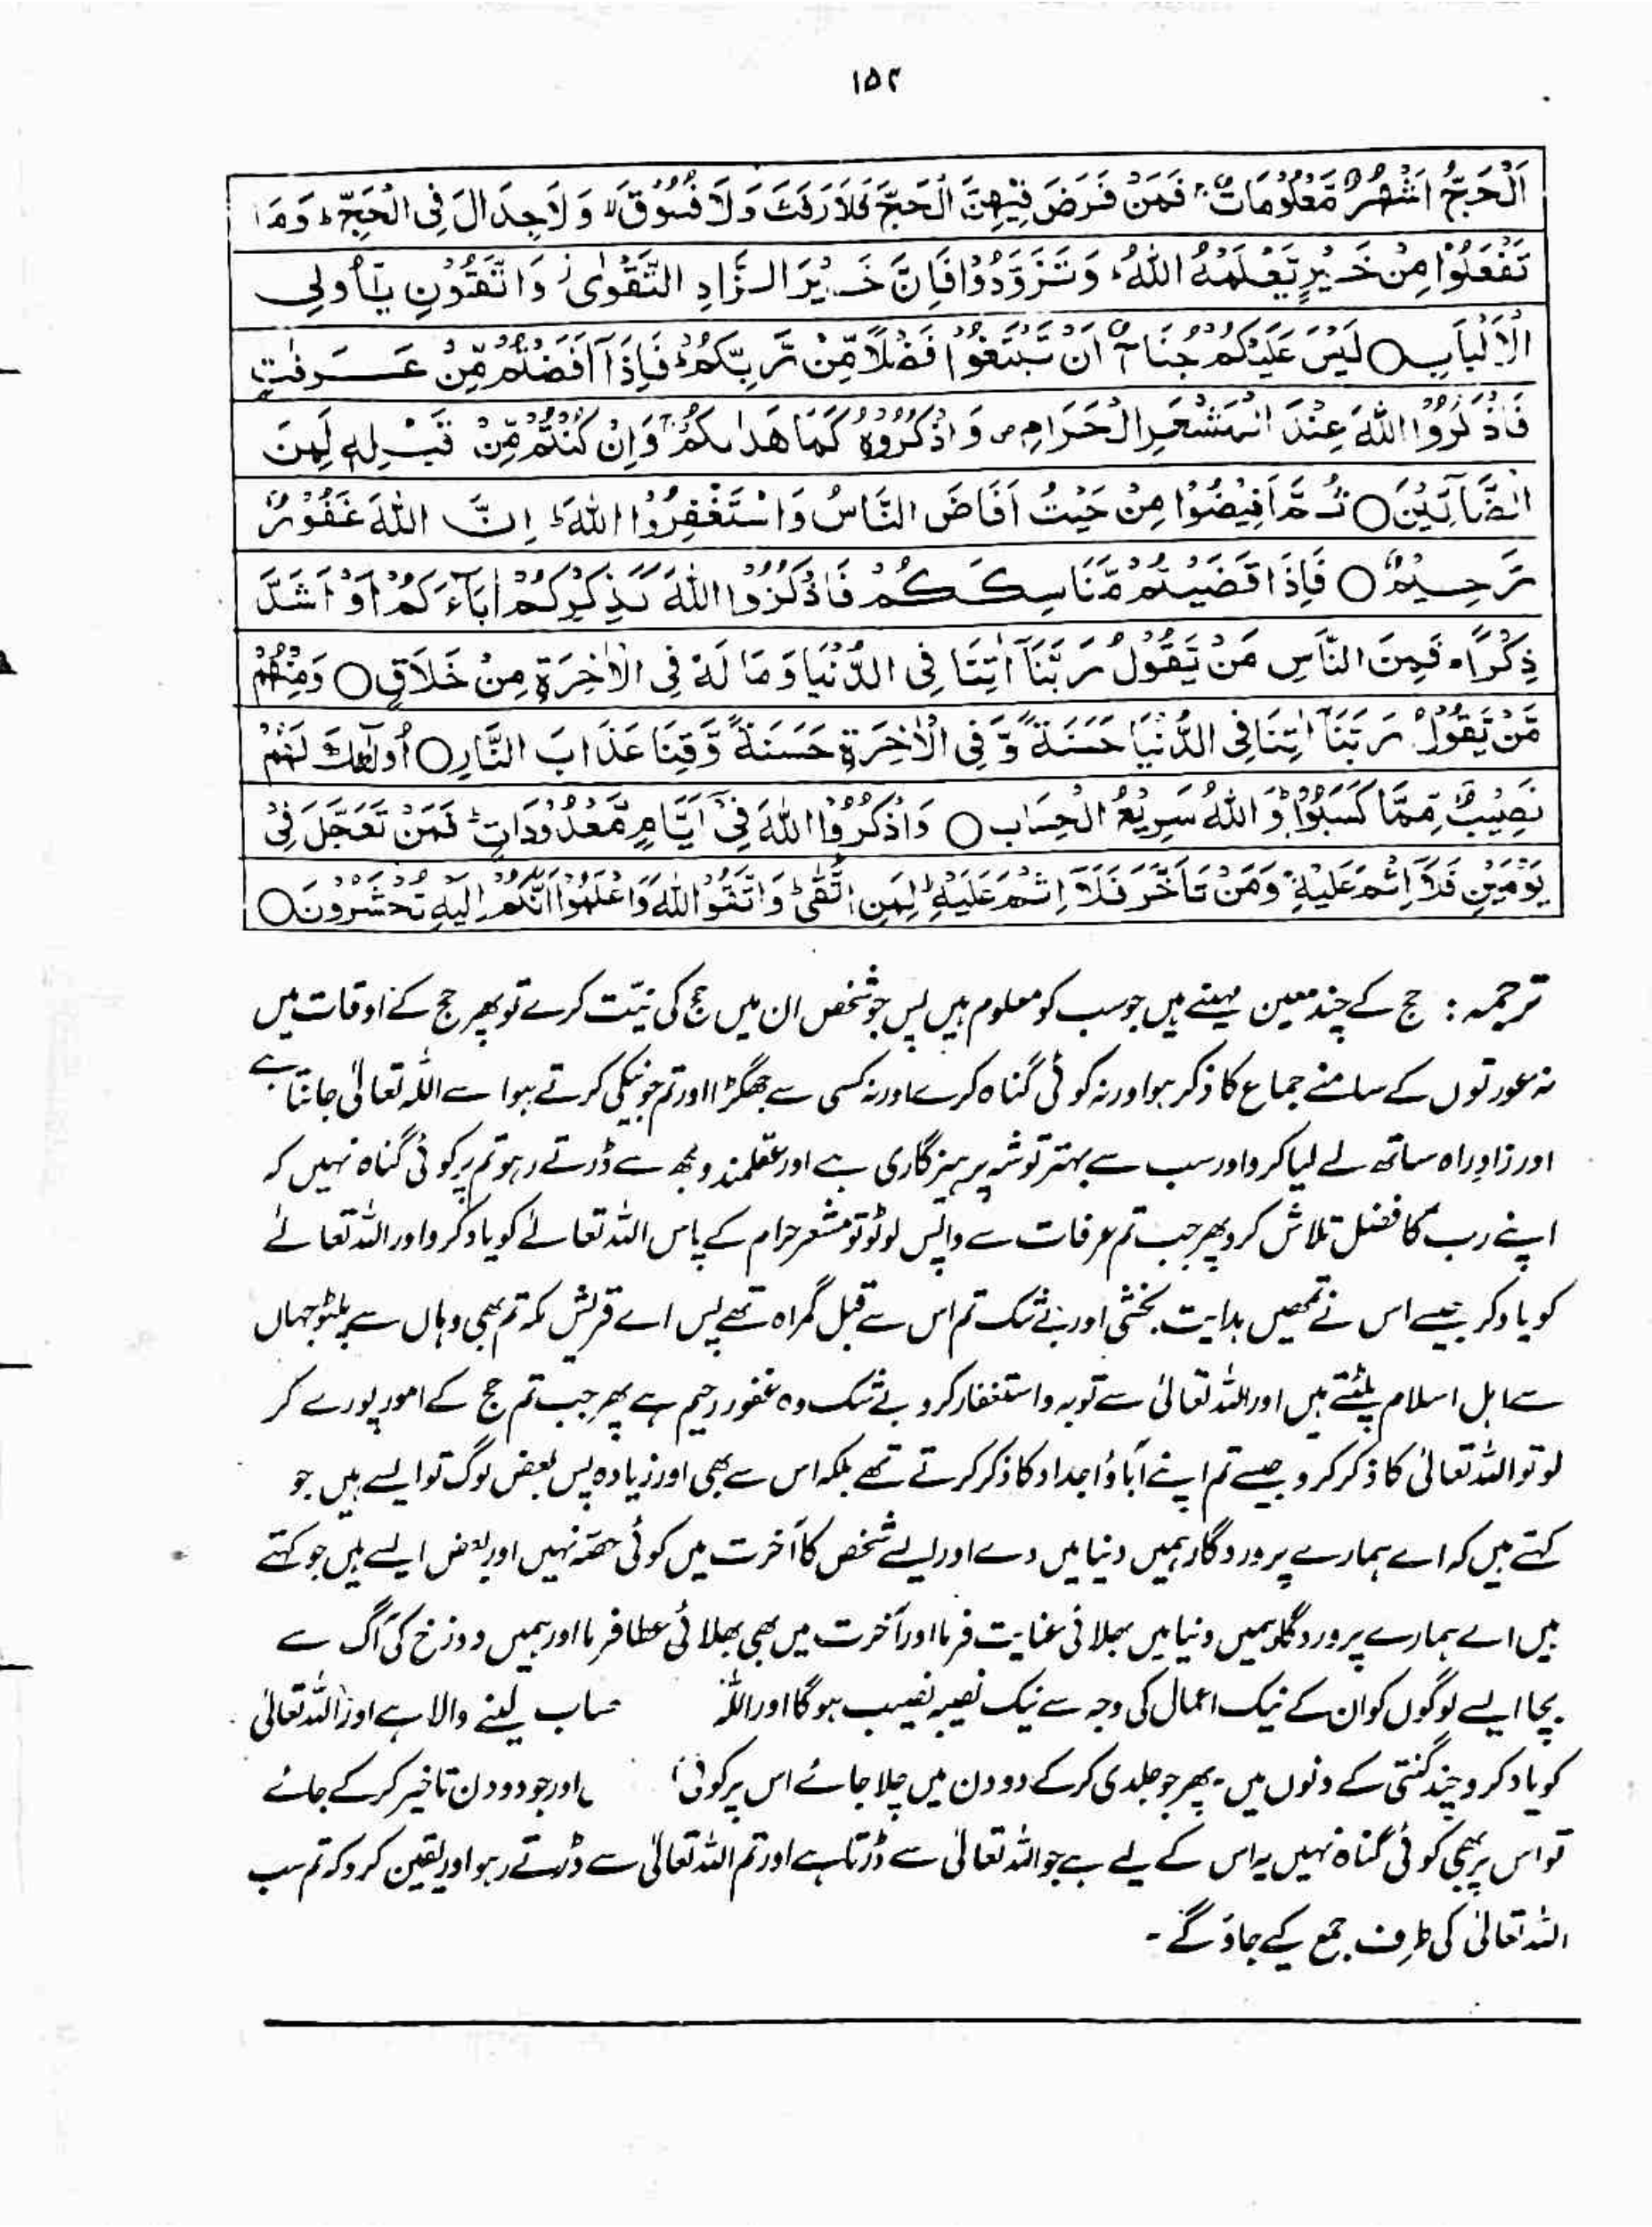 ۱۵۲
اَلْحَجُّ اَشْهُرٌ مَّعْلُوْمَاتٌ ۚ فَمَنْ فَرَضَ فِیْهِنَّ الْحَجَّ فَلَا رَفَثَ وَلَا فُسُوْقَ ۙ وَلَا جِدَالَ فِی الْحَجِّ ؕ وَمَا
تَفْعَلُوْا مِنْ خَیْرٍ یَّعْلَمْهُ اللّٰهُ ؕ وَتَزَوَّدُوْا فَاِنَّ خَیْرَ الزَّادِ التَّقْوٰی ۫ وَاتَّقُوْنِ یٰٓاُولِی
الْاَلْبَابِ ○ لَیْسَ عَلَیْكُمْ جُنَاحٌ اَنْ تَبْتَغُوْا فَضْلًا مِّنْ رَّبِّكُمْ ؕ فَاِذَآ اَفَضْتُمْ مِّنْ عَرَفٰتٍ
فَاذْكُرُوا اللّٰهَ عِنْدَ الْمَشْعَرِ الْحَرَامِ ۪ وَاذْكُرُوْهُ كَمَا هَدٰىكُمْ ۚ وَاِنْ كُنْتُمْ مِّنْ قَبْلِهٖ لَمِنَ
الضَّآلِّیْنَ ○ ثُمَّ اَفِیْضُوْا مِنْ حَیْثُ اَفَاضَ النَّاسُ وَاسْتَغْفِرُوا اللّٰهَ ؕ اِنَّ اللّٰهَ غَفُوْرٌ
رَّحِیْمٌ ○ فَاِذَا قَضَیْتُمْ مَّنَاسِكَكُمْ فَاذْكُرُوا اللّٰهَ كَذِكْرِكُمْ اٰبَآءَكُمْ اَوْ اَشَدَّ
ذِكْرًا ؕ فَمِنَ النَّاسِ مَنْ یَّقُوْلُ رَبَّنَآ اٰتِنَا فِی الدُّنْیَا وَمَا لَهٗ فِی الْاٰخِرَةِ مِنْ خَلَاقٍ ○ وَمِنْهُمْ
مَّنْ یَّقُوْلُ رَبَّنَآ اٰتِنَا فِی الدُّنْیَا حَسَنَةً وَّفِی الْاٰخِرَةِ حَسَنَةً وَّقِنَا عَذَابَ النَّارِ ○ اُولٰٓئِكَ لَهُمْ
نَصِیْبٌ مِّمَّا كَسَبُوْا ؕ وَاللّٰهُ سَرِیْعُ الْحِسَابِ ○ وَاذْكُرُوا اللّٰهَ فِیْٓ اَیَّامٍ مَّعْدُوْدَاتٍ ؕ فَمَنْ تَعَجَّلَ فِیْ
یَوْمَیْنِ فَلَآ اِثْمَ عَلَیْهِ ۚ وَمَنْ تَاَخَّرَ فَلَآ اِثْمَ عَلَیْهِ ۙ لِمَنِ اتَّقٰی ؕ وَاتَّقُوا اللّٰهَ وَاعْلَمُوْٓا اَنَّكُمْ اِلَیْهِ تُحْشَرُوْنَ ○
ترجمہ : حج کے چند معین مہینے ہیں جو سب کو معلوم ہیں پس جو شخص ان میں حج کی نیّت کرے تو پھر حج کے اوقات میں
نہ عورتوں کے سامنے جماع کا ذکر ہو اور نہ کوئی گناہ کرے اور نہ کسی سے جھگڑا اور تم جو نیکی کرتے ہو اسے اللہ تعالیٰ جانتا ہے
اور زادِ راہ ساتھ لے لیا کرو اور سب سے بہتر توشہ پرہیزگاری ہے اور عقلمندو مجھ سے ڈرتے رہو تم پر کوئی گناہ نہیں کہ
اپنے رب کا فضل تلاش کرو پھر جب تم عرفات سے واپس لوٹو تو مشعر حرام کے پاس اللہ تعالےٰ کو یاد کرو اور اللہ تعالےٰ
کو یاد کر جیسے اس نے تمھیں ہدایت بخشی اور بے شک تم اس سے قبل گمراہ تھے پس اے قریش مکہ تم بھی وہاں سے پلٹو جہاں
سے اہل اسلام پلٹتے ہیں اور اللہ تعالیٰ سے توبہ و استغفار کرو بے شک وہ غفور رحیم ہے پھر جب تم حج کے امور پورے کر
لو تو اللہ تعالیٰ کا ذکر کرو جیسے تم اپنے آباؤ اجداد کا ذکر کرتے تھے بلکہ اس سے بھی اور زیادہ پس بعض لوگ تو ایسے ہیں جو
کہتے ہیں کہ اے ہمارے پروردگار ہمیں دنیا میں دے اور ایسے شخص کا آخرت میں کوئی حصّہ نہیں اور بعض ایسے ہیں جو کہتے
ہیں اے ہمارے پروردگار ہمیں دنیا میں بھلائی عنایت فرما اور آخرت میں بھی بھلائی عطا فرما اور ہمیں دوزخ کی آگ سے
بچا ایسے لوگوں کو ان کے نیک اعمال کی وجہ سے نیک نصیبہ نصیب ہوگا اور اللہ حساب لینے والا ہے اور اللہ تعالیٰ
کو یاد کرو چند گنتی کے دنوں میں۔ پھر جو جلدی کرکے دو دن میں چلا جائے اس پر کوئی اور جو دو دن تاخیر کرکے جائے
تو اس پر بھی کوئی گناہ نہیں یہ اس کے لیے ہے جو اللہ تعالیٰ سے ڈرتا ہے اور تم اللہ تعالیٰ سے ڈرتے رہو اور یقین کرو کہ تم سب
اللہ تعالیٰ کی طرف جمع کیے جاؤ گے۔